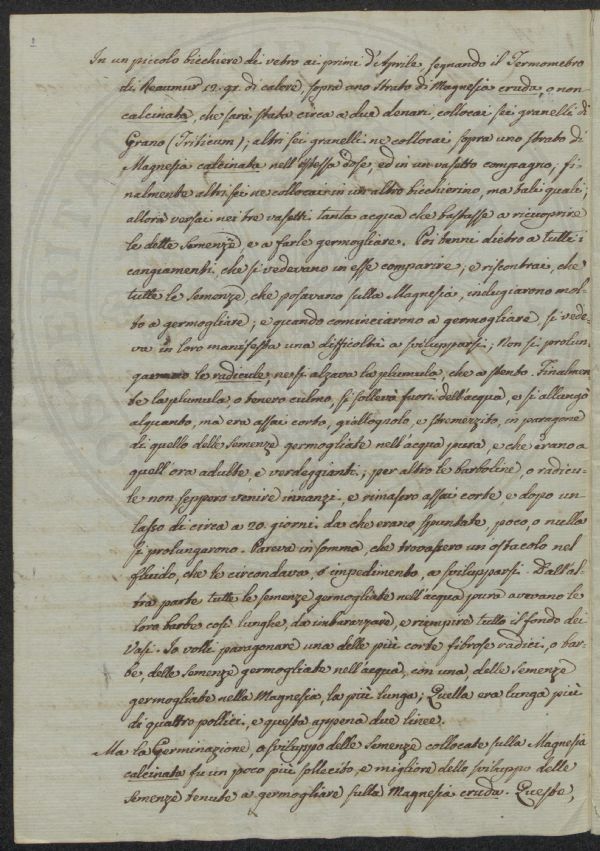 In un piccolo bicchiere di vetro ai primi d'Aprile, segnando il Termometro
di Reaumur 12. gr. di calore, sopra uno strato di Magnesia cruda, o non
calcinata, che sarà stata circa a due denari, collocai sei granelli di
Grano (Triticum); altri sei granelli ne collocai sopra uno strato di
Magnesia calcinata nell'istessa dose, ed in un vasetto compagno; fi-
nalmente altri sei ne collocai in un altro bicchierino, ma tali quali;
allora versai nei tre vasetti tanta acqua che bastasse a ricuoprire
le dette Semenze e a farle germogliare. Poi tenni dietro a tutti i
cangiamenti, che si vedevano in esse comparire; e riscontrai, che
tutte le Semenze, che posavano sulla Magnesia, indugiarono mol-
to a germogliare; e quando cominciarono a germogliare, si vede-
va in loro manifesta una difficoltà a svilupparsi; Non si prolun-
gavano le radicule, ne si alzava la plumula, che a stento. Finalmen
te la plumula o tenero culmo, si sollevò fuori dell'acqua, e si allungò
alquanto, ma era assai corto, giallognolo, e stremenzito, in paragone
di quello delle Semenze germogliate nell'acqua pura, e che erano a
quell'ora adulte, e verdeggianti; per altro le barboline, o radicu-
le non seppero venire innanzi, e rimasero assai corte, e dopo un
lasso di circa a 20 giorni, da che erano spuntate, poco, o nulla
si prolungarono. Pareva in somma, che trovassero un ostacolo nel
fluido, che le circondava, o impedimento, a svilupparsi. Dall'al-
tra parte tutte le semenze germogliate nell'acqua pura avevano le
loro barbe così lunghe, da imbarazzare, e riempire tutto il fondo dei
Vasi. Io volli paragonare una delle più corte fibrose radici, o bar-
be, delle Semenze germogliate nell'acqua, con una delle Semenze
germogliate nella Magnesia, la più lunga; Quella era lunga più
di quattro pollici, e questa appena due linee.
Ma la Germinazione, o sviluppo delle Semenze collocate sulla Magnesia
calcinata fu un poco più sollecito, e migliore dello sviluppo delle
Semenze tenute a germogliare sulla Magnesia cruda. Queste,